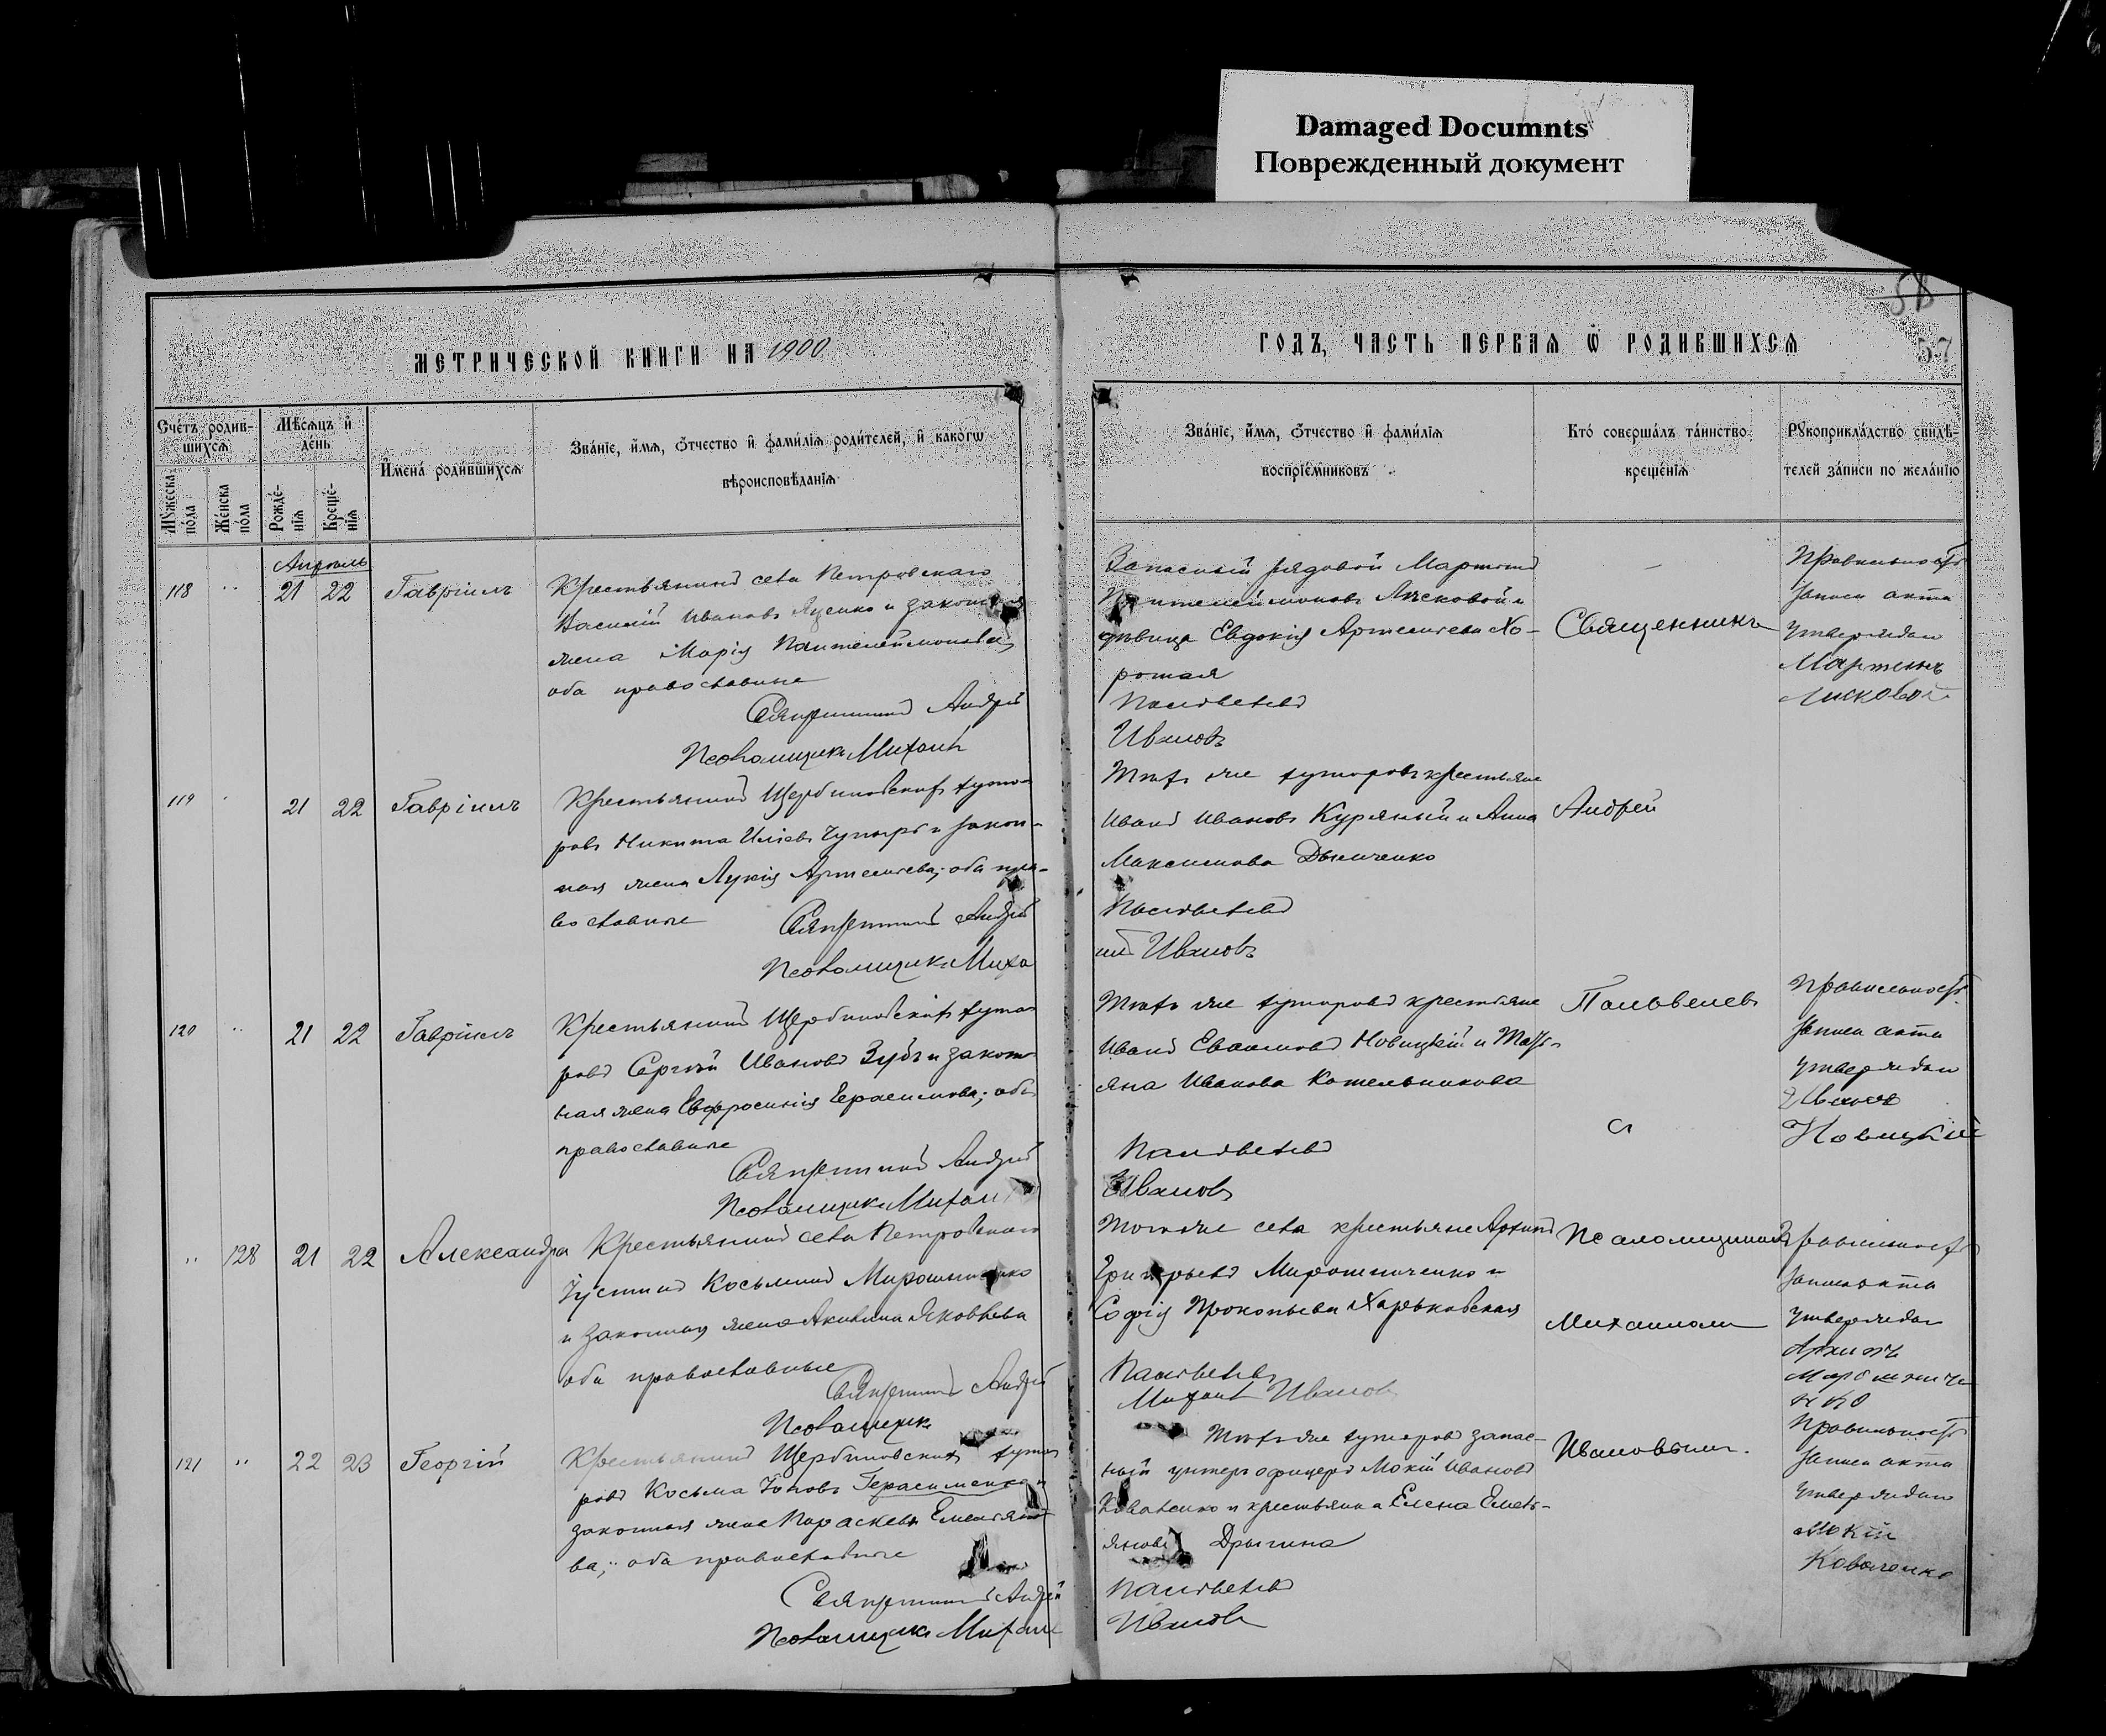 Damaged Documnts
Поврежденный документ
58
МЕТРИЧЕСКОЙ КНИГИ НА 1900
ГОДЪ, ЧАСТЬ ПЕРВАЯ Ѡ РОДИВШИХСЯ
57
Счетъ родив-
шихся
Мужеска пола
Женска пола
Мѣсяцъ и
день
Рожде-
нія
Креще-
нія
Имена родившихся
Званіе, имя, ѿчество и фамилія родителей, и какогѡ
вѣроисповѣданія
Званіе, имя, ѿчество и фамилія
воспріемниковъ
Кто совершалъ таинство
крещенія
Рукоприкладство свидѣ-
телей записи по желанію
Апрель
118 " 21 22 Гавріилъ
Крестьянинъ села Петровскаго
Василій Ивановъ Яценко и законная
жена Марія Пантелеймонова
оба православные
Священникъ Андрей
Псаломщикъ Михаилъ
Запасный рядовой Мартинъ
Пантелеймоновъ Лясковой и
дѣвица Евдокія Артемьева Хо-
рошая
Пальвелевъ
Ивановъ
Священникъ
Правильность
записи акта
утверждаю
Мартинъ
Лисковой
119 " 21 22 Гавріилъ
Крестьянинъ Щербиновскихъ хуто-
ровъ Никита Иліевъ Чупырь и закон-
ная жена Лукія Артемьева; оба пра-
вославные
Священникъ Андрей
Псаломщикъ Миха
Тѣхъ же хуторовъ крестьяне
Иванъ Ивановъ Куряный и Анна
Максимова Дымченко
Пальвелевъ
илъ Ивановъ
Андрей
120 " 21 22 Гавріилъ
Крестьянинъ Щербиновскихъ хуто-
ровъ Сергѣй Ивановъ Зубъ и закон-
ная жена Евфросинія Герасимова; оба
православные
Священникъ Андрей
Псаломщикъ Михаил
Тѣхъ же хуторовъ крестьяне
Иванъ Евѳимовъ Новицкій и Тать-
яна Иванова Котельникова
Пальвелевъ
Ивановъ
Пальвелевъ
съ
Правильность
записи акта
утверждаю
Иванъ
Новицкій
" 128 21 22 Александра
Крестьянинъ села Петровскаго
Іустинъ Косьминъ Мирошниченко
и законная жена Акилина Яковлева
оба православные
Священникъ Андрей
Псаломщикъ
Того же села крестьяне Архипъ
Григорьевъ Мирошниченко и
Софія Прокопьева Харьковская
Пальвелевъ
Михаилъ Ивановъ
Псаломщикомъ
Михаиломъ
Правильность
записи акта
утверждаю
Архипъ
Мирошниче
нко
121 " 22 23 Георгій
Крестьянинъ Щербиновскихъ хуто-
ровъ Косьма Іововъ Герасименко и
законная жена Параскева Емельяно-
ва; оба православные
Священникъ Андрей
Псаломщикъ Михаилъ
Тѣхъ же хуторовъ запас-
ный унтеръ офицеръ Мокій Ивановъ
Коваленко и крестьянка Елена Емель-
янова Дрыгина
Пальвелевъ
Ивановъ
Ивановымъ.
Правильность
записи акта
утверждаю
Мокій
Коваленко